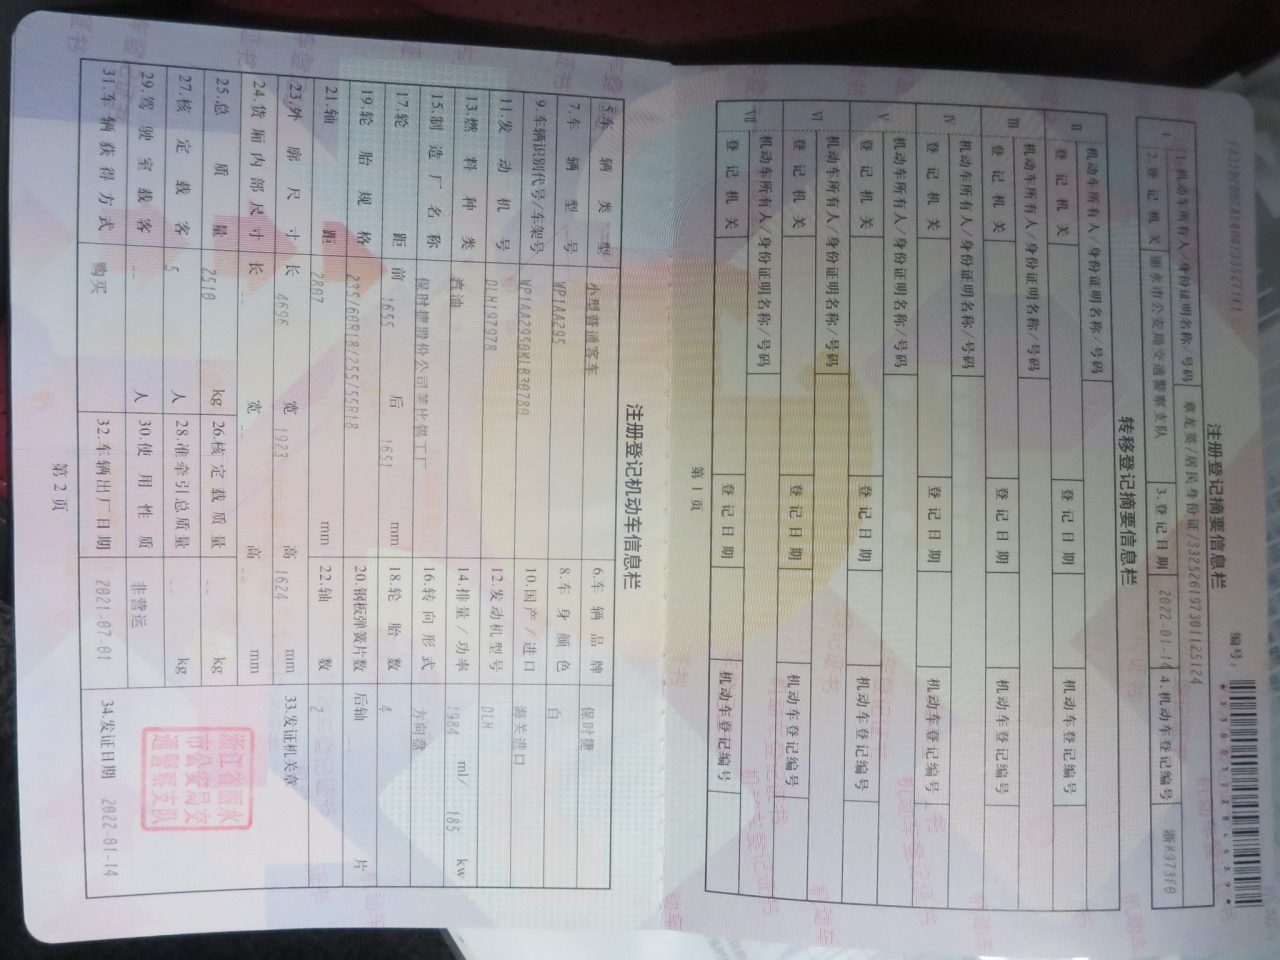 注册登记摘要信息栏
编号：
1.机动车所有人/身份证明名称/号码 章龙英/居民身份证/332526197301125124
I 2.登记机关 丽水市公安局交通警察支队 3.登记日期 2022-01-14 4.机动车登记编号 浙K973F0
转移登记摘要信息栏
机动车所有人/身份证明名称/号码
II 登记机关 登记日期 机动车登记编号
机动车所有人/身份证明名称/号码
III 登记机关 登记日期 机动车登记编号
机动车所有人/身份证明名称/号码
IV 登记机关 登记日期 机动车登记编号
机动车所有人/身份证明名称/号码
V 登记机关 登记日期 机动车登记编号
机动车所有人/身份证明名称/号码
VI 登记机关 登记日期 机动车登记编号
机动车所有人/身份证明名称/号码
VII 登记机关 登记日期 机动车登记编号
第1页
注册登记机动车信息栏
5.车辆类型 小型普通客车 6.车辆品牌 保时捷
7.车辆型号 WP1AA295 8.车身颜色 白
9.车辆识别代号/车架号 WP1AA2950MLB30780 10.国产/进口 海关进口
11.发动机号 DLH197978 12.发动机型号 DLH
13.燃料种类 汽油 14.排量/功率 1984 ml/ 185 kw
15.制造厂名称 保时捷股份公司莱比锡工厂 16.转向形式 方向盘
17.轮距 前 1655 后 1651 mm 18.轮胎数 4
19.轮胎规格 235/60R18/255/55R18 20.钢板弹簧片数 后轴 -- 片
21.轴距 2807 mm 22.轴数 2
23.外廓尺寸 长 4696 宽 1923 高 1624 mm 33.发证机关章
24.货厢内部尺寸 长 -- 宽 -- 高 -- mm
25.总质量 2510 kg 26.核定载质量 -- kg
27.核定载客 5 人 28.准牵引总质量 -- kg
29.驾驶室载客 -- 人 30.使用性质 非营运
31.车辆获得方式 购买 32.车辆出厂日期 2021-07-01 34.发证日期 2022-01-14
浙江省丽水
市公安局交
通警察支队
第2页